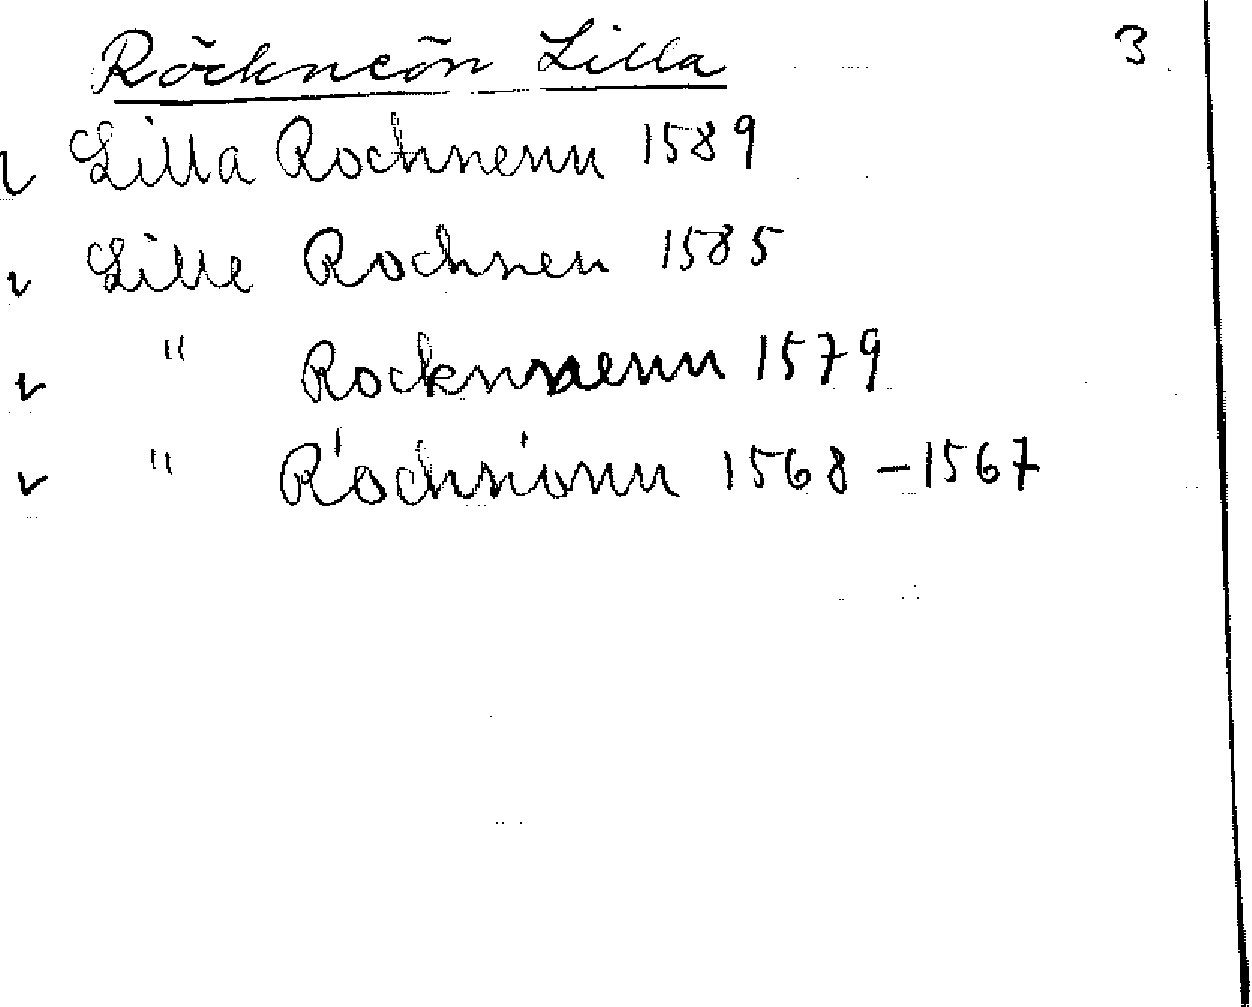 Röckneön Lilla 3
v Lilla Rochnenn 1589
v Lille Rochnen 1585
v " Rocknnenn 1579
v " Röchnionn 1568-1567